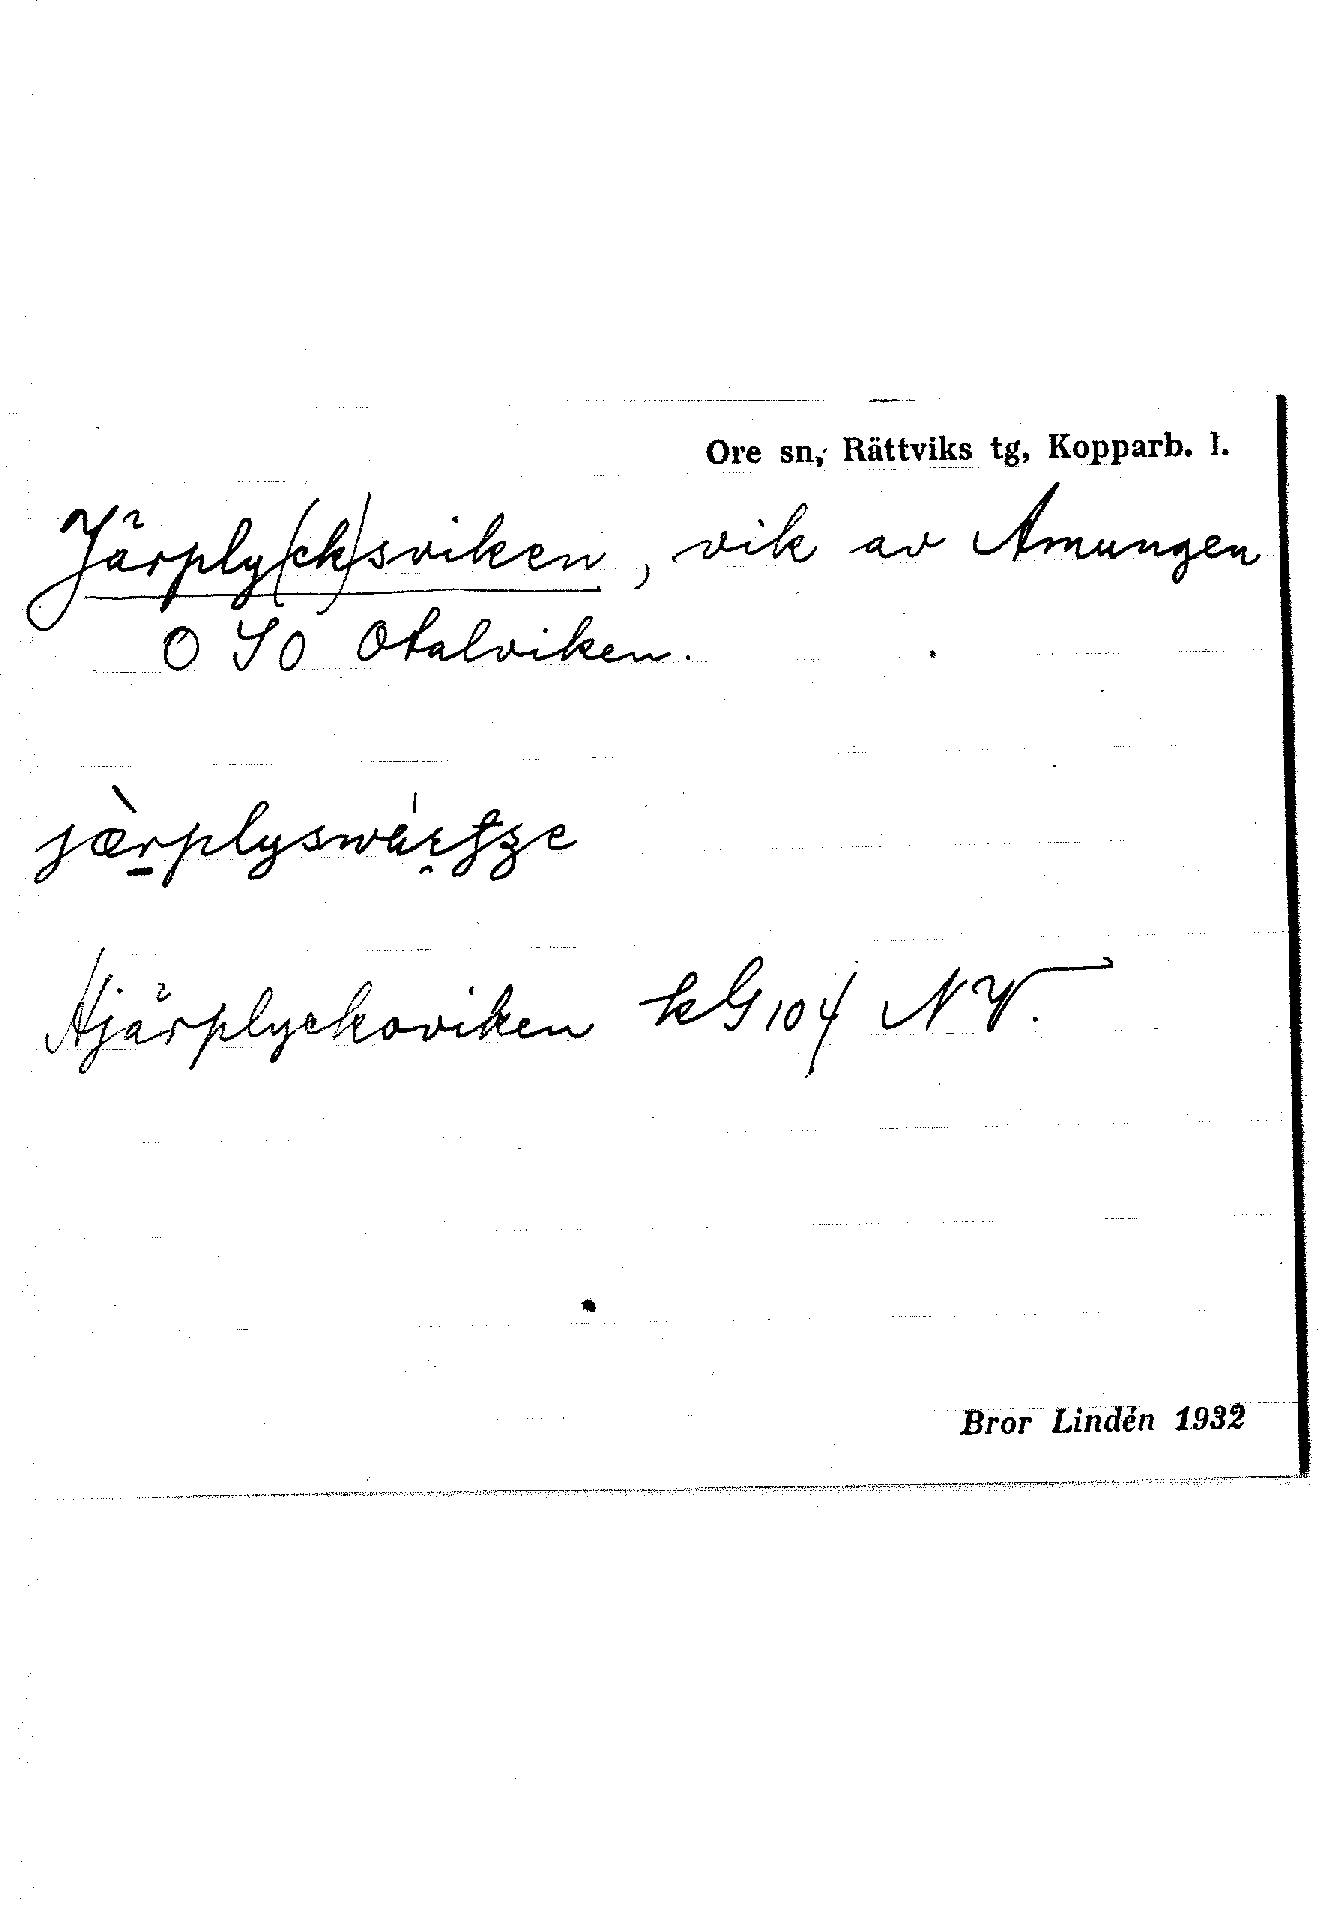 Ore sn, Rättviks tg, Kopparb. l.
Järply(ck)sviken, vik av Amungen
O S O Otalviken.
Hjärplyckoviken kG 104 NV.
Bror Lindén 1932